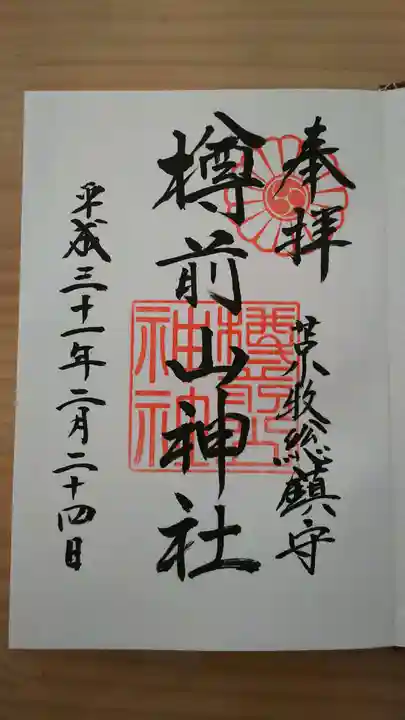 奉拝
苫小牧総鎮守
樽前山神社
樽前山神社
平成三十一年二月二十四日